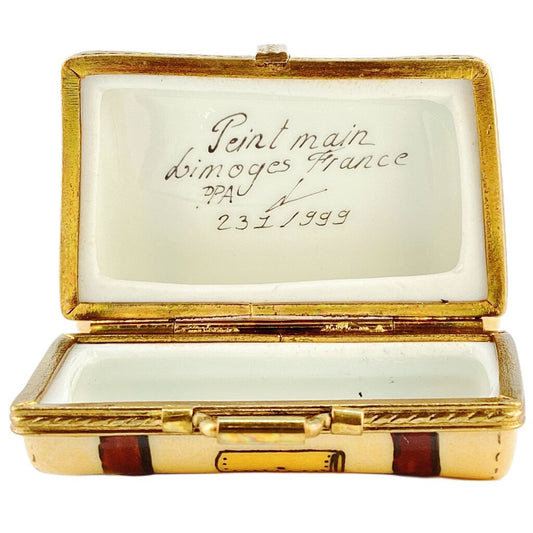 Peint main
Limoges France
PPA
231/999